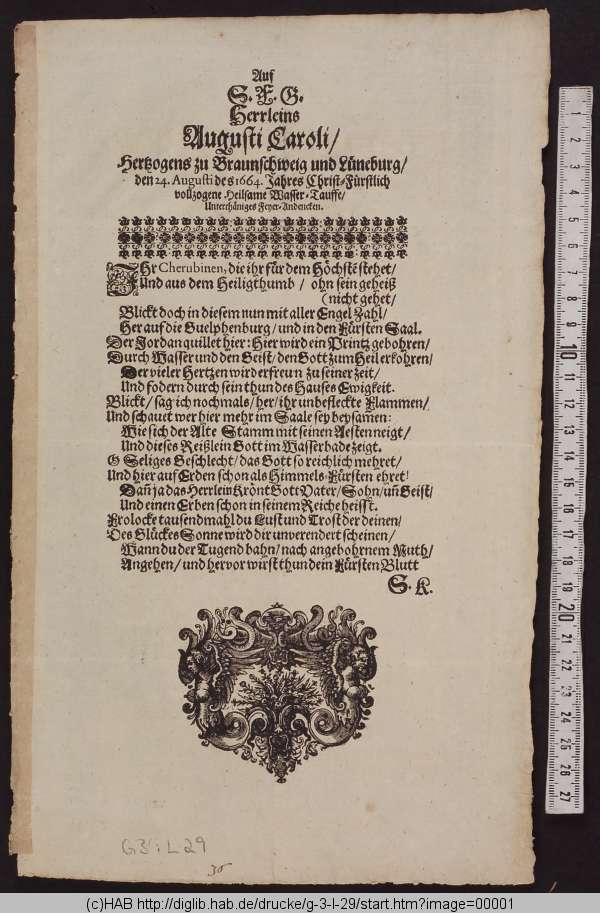 Auf
S. F. G.
Herrleins
Augusti Caroli/
Hertzogens zu Braunschweig und Lüneburg/
den 24. Augusti des 1664. Jahres Christ-Fürstlich
vollzogene Heilsame Wasser-Tauffe/
Unterthäniges Feyer-Andencken.
IHr Cherubinen, die ihr für dem Höchste stehet/
Und aus dem Heiligthumb / ohn sein geheiß
(nicht gehet/
Blickt doch in diesem nun mit aller Engel Zahl/
Her auf die Guelphenburg/ und in den Fürsten Saal.
Der Jordan quillet hier: Hier wird ein Printz gebohren/
Durch Wasser und den Geist/ den Gott zum Heil erkohren/
Der vieler Hertzen wird erfreun zu seiner zeit/
Und fodern durch sein thun des Hauses Ewigkeit.
Blickt/ sag ich nochmals/ her/ ihr unbefleckte Flammen/
Und schauet wer hier mehr im Saale sey beysamen:
Wie sich der Alte Stamm mit seinen Aesten neigt/
Und dieses Reißlein Gott im Wasserbade zeigt.
O Seliges Geschlecht/ das Gott so reichlich mehret/
Und hier auf Erden schon als Himmels-Fürsten ehret!
Dañ ja das Herrlein krönt Gott Vater/ Sohn/ uñ Geist/
Und einen Erben schon in seinem Reiche heisst.
Frolocke tausendmahl du Lust und Trost der deinen/
Des Glückes Sonne wird dir unverendert scheinen/
Wann du der Tugend bahn/ nach angebohrnem Muth/
Angehen/ und hervor wirst thun dein Fürsten Blutt
S. K.
G3:L29
30
1 2 3 4 5 6 7 8 9 10 11 12 13 14 15 16 17 18 19 20 21 22 23 24 25 26 27
(c)HAB http://diglib.hab.de/drucke/g-3-l-29/start.htm?image=00001